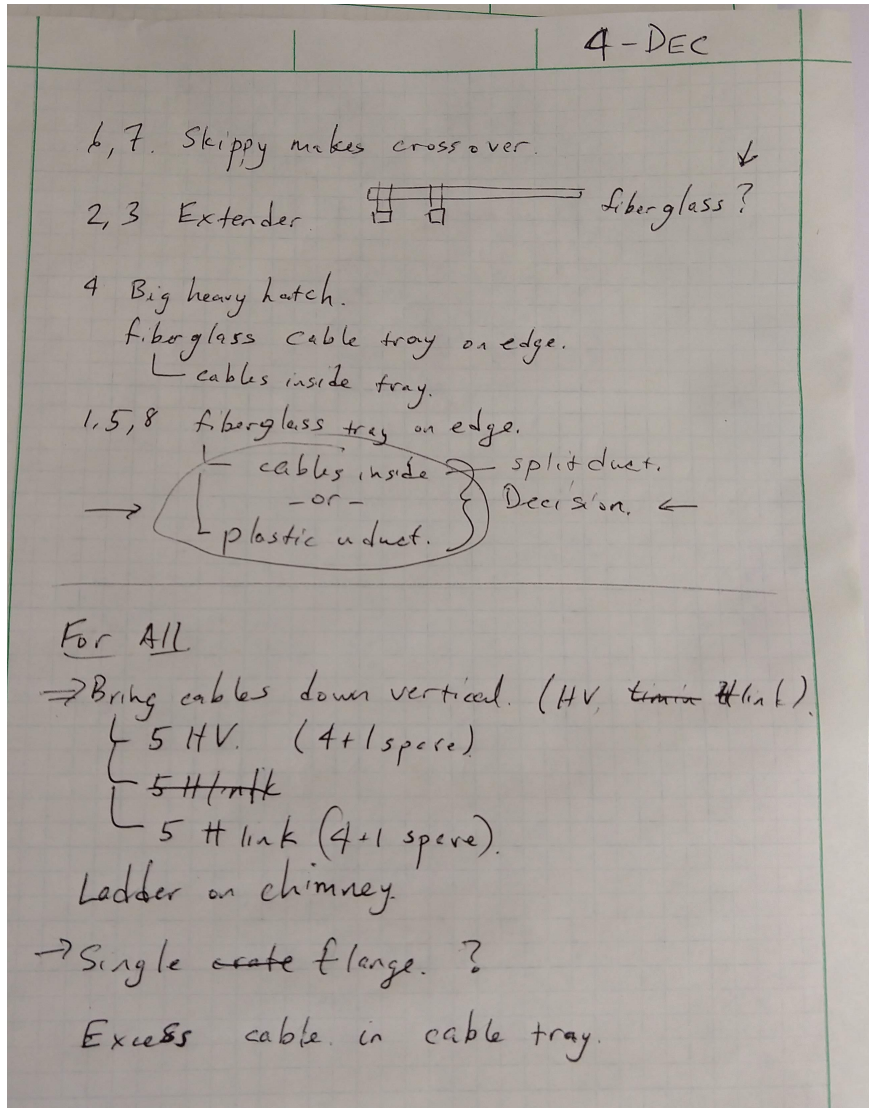 4-DEC
6,7. Skippy makes crossover.
2,3 Extender fiberglass?
4 Big heavy hatch.
fiberglass cable tray on edge.
cables inside tray.
1,5,8 fiberglass tray on edge.
cables inside split duct.
-or- Decision.
plastic u duct.
For All
Bring cables down vertical. (HV, timin H link).
5 HV. (4+1 spare)
5 H link
5 H link (4+1 spare).
Ladder on chimney.
Single crate flange. ?
Excess cable in cable tray.